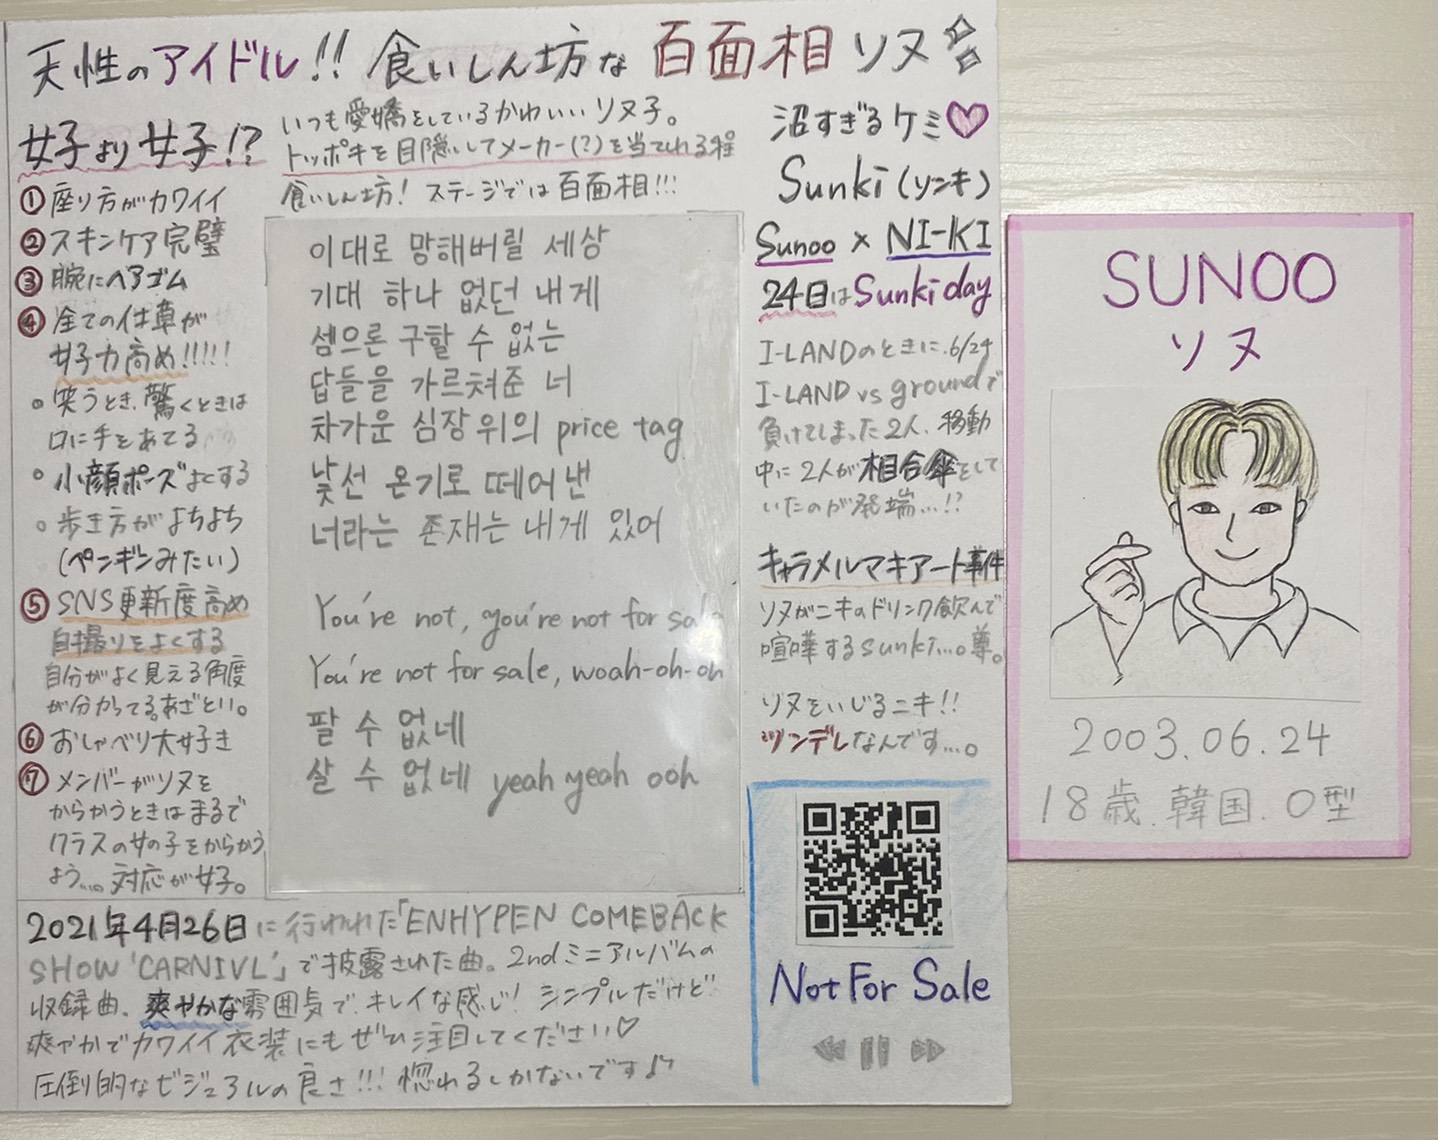 天性のアイドル!! 食いしん坊な百面相ソヌ
女子より女子!?
①座り方がカワイイ
②スキンケア完璧
③腕にヘアゴム
④全ての仕草が
女子力高め!!!!!
。笑うとき、驚くときは
口に手をあてる
。小顔ポーズよくする
。歩き方がよちよち
(ペンギンみたい)
⑤SNS更新度高め
自撮りをよくする
自分がよく見える角度
が分かってる。あざとい。
⑥おしゃべり大好き
⑦メンバーがソヌを
からかうときはまるで
クラスの女の子をからかう
よう...。対応が女子。
いつも愛嬌をしているかわいいソヌ子。
トッポキを目隠ししてメーカー(?)を当てれる程
食いしん坊! ステージでは百面相!!!
이대로 망해버릴 세상
기대 하나 없던 내게
셈으론 구할 수 없는
답들을 가르쳐준 너
차가운 심장 위의 price tag
낯선 온기로 떼어낸
너라는 존재는 내게 있어
You're not, you're not for sale
You're not for sale, woah-oh-oh
팔 수 없네
살 수 없네 yeah yeah ooh
沼すぎるケミ♡
Sunki(ソンキ)
Sunoo × NI-KI
24日はSunki day
I-LANDのときに、6/24
I-LAND vs groundで
負けてしまった2人、移動
中に2人が相合傘をして
いたのが発端...!?
キャラメルマキアート事件
ソヌがニキのドリンク飲んで
喧嘩するsunki...。尊。
ソヌをいじるニキ!!
ツンデレなんです...。
Not For Sale
2021年4月26日に行われた「ENHYPEN COMEBACK
SHOW 'CARNIVL'」で披露された曲。2ndミニアルバムの
収録曲。爽やかな雰囲気で、キレイな感じ! シンプルだけど
爽やかでカワイイ衣装にもぜひ注目してください♡
圧倒的なビジュアルの良さ!!! 惚れるしかないです♪
SUNOO
ソヌ
2003.06.24
18歳.韓国.O型